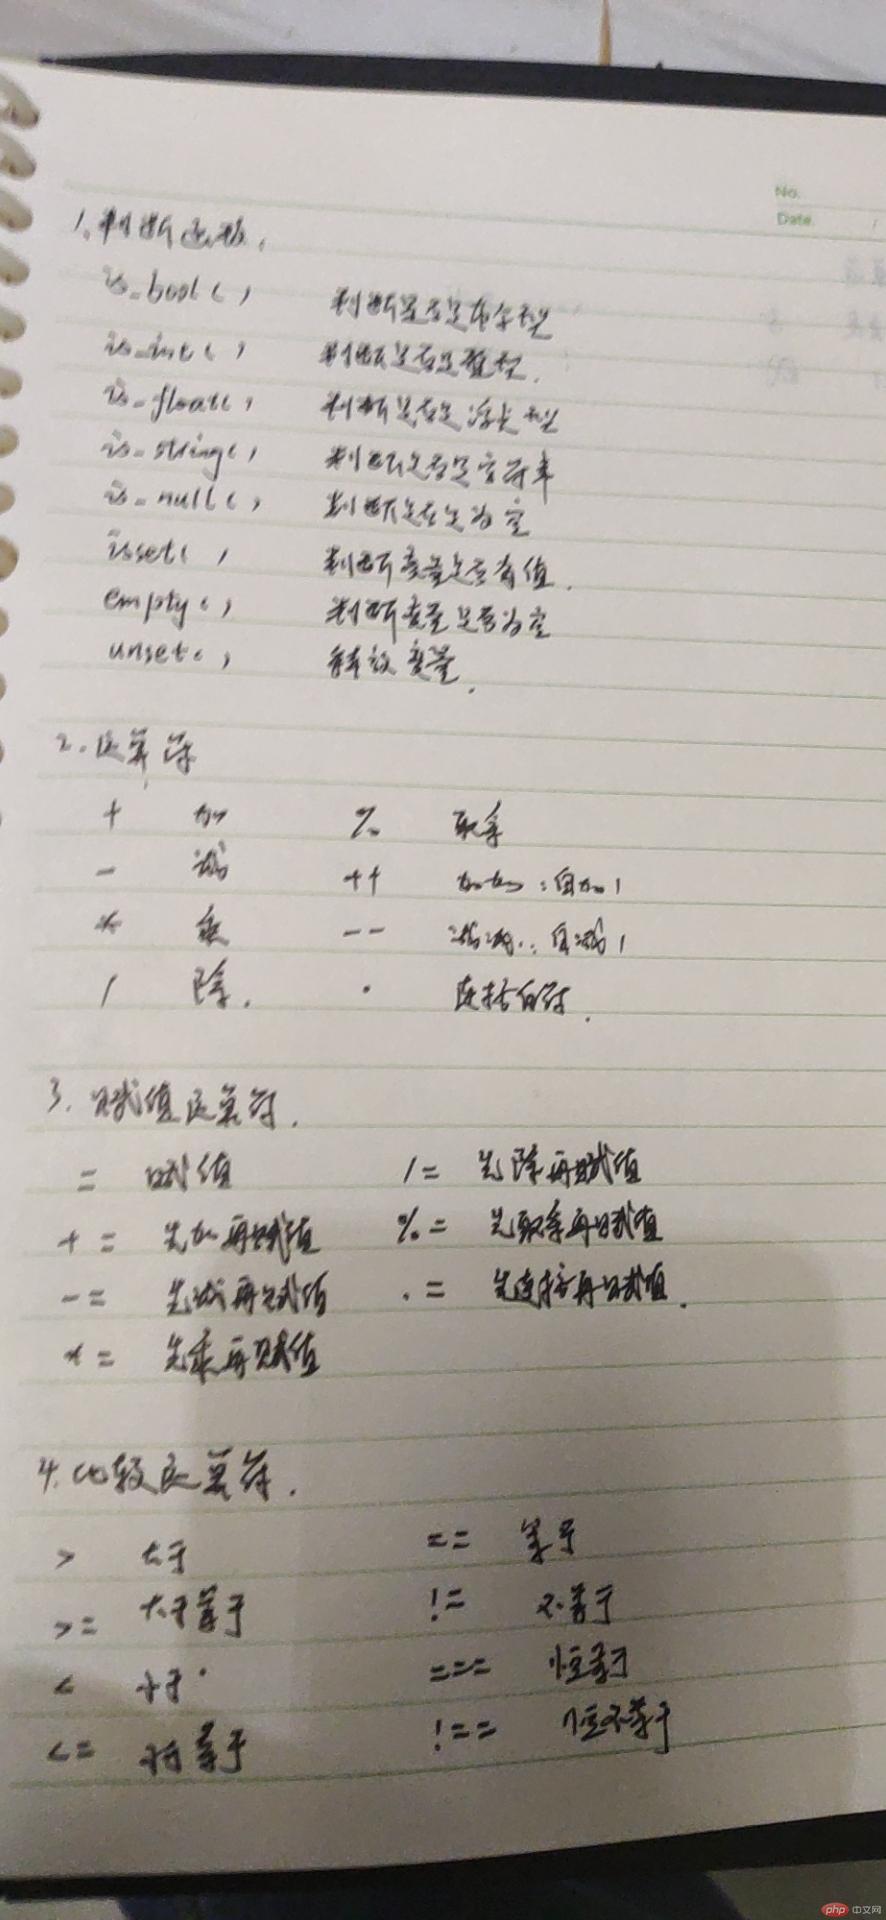 No.
Date
1. 判断函数.
is_bool() 判断是否是布尔型
is_int() 判断是否是整型.
is_float() 判断是否是浮点型
is_string() 判断是否是字符串
is_null() 判断是否为空
isset() 判断变量是否有值.
empty() 判断变量是否为空
unset() 释放变量.
2. 运算符
+ 加 % 取余
- 减 ++ 加加:自加1
* 乘 -- 减减:自减1
/ 除. .
3. 赋值运算符.
= 赋值 /= 先除再赋值
+= 先加再赋值 %= 先取余再赋值
-= 先减再赋值 .= 先连接再赋值.
*= 先乘再赋值
4. 比较运算符.
> 大于 == 等于
>= 大于等于 != 不等于
< 小于 === 恒等于
<= 小于等于 !== 恒不等于
php 中文网